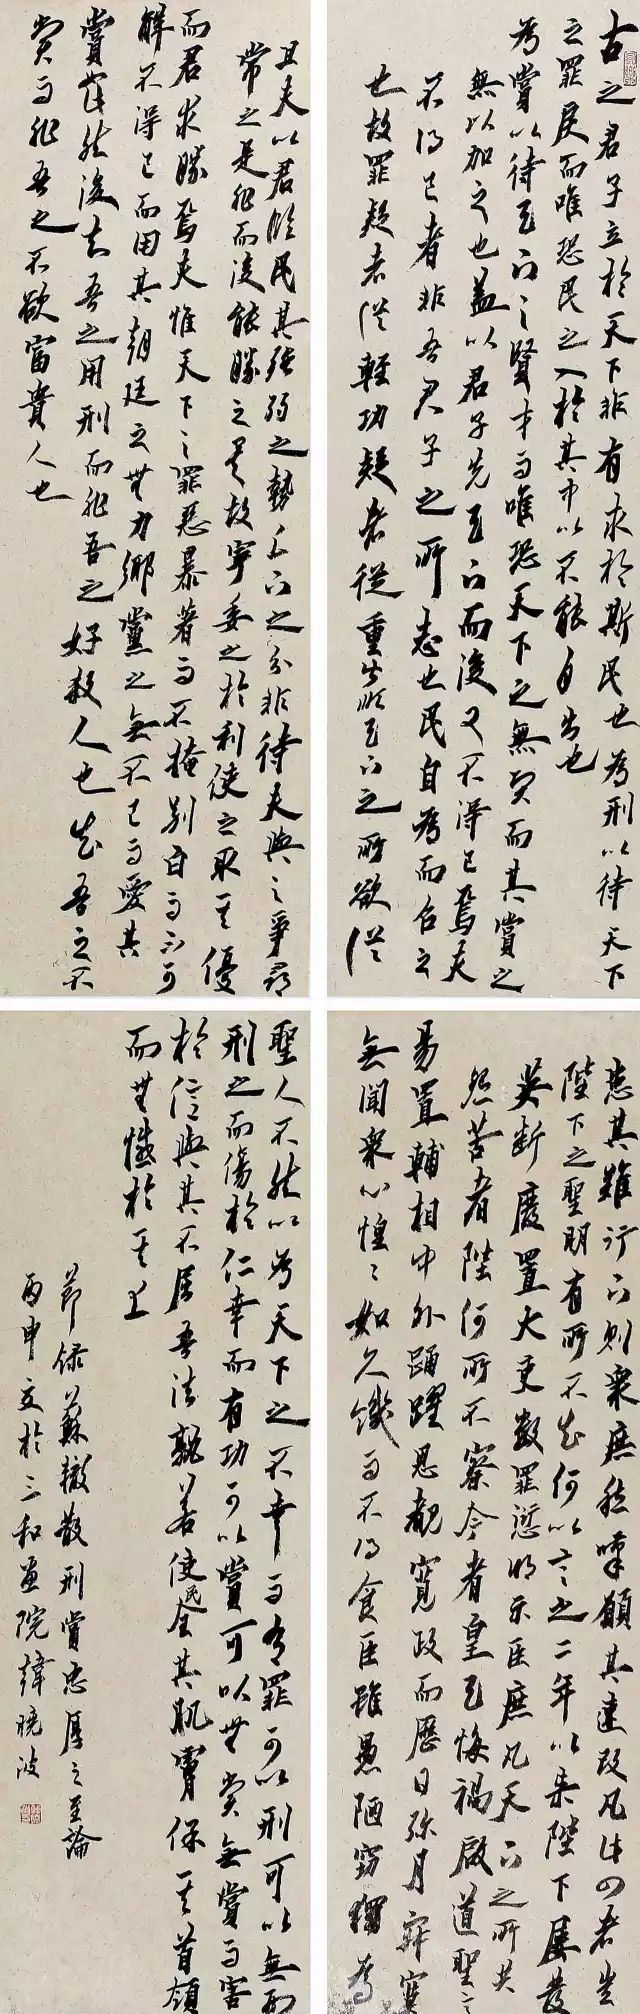 古之君子立於天下非有求於斯民也為刑以待天下
之罪戾而唯恐民之入於其中以不能自出也
為賞以待天下之賢才而唯恐天下之無賢而其賞之
無以加之也蓋以君子先天下而後又不得已焉夫
不得已者非吾君子之所志也民自為而召之
也故罪疑者從輕功疑者從重皆順天下之所欲從
且夫以君臨民其強弱之勢上下之分非待夫與之爭尋
常之是非而後能勝之矣故寧委之於利使之取其優
而君求勝焉夫惟天下之罪惡暴著而不掩別白而不可
解不得已而用其朝廷之無功鄉黨之無不已而愛其
賞然後知吾之用刑而非吾之好殺人也知吾之不
賞而非吾之不欲富貴人也
患其難行下則衆庶愁嘆願其速改凡此四者豈
陛下之聖明有所不知何以言之二年以來陛下屢發
英斷廢置大吏數罪愆明示臣庶凡天下之所共
怨苦者陛何所不察今者皇天悔禍啟道聖意
易置輔相中外踴躍思覩寬政而歷日彌月寂寞
無聞衆心惶〻如久饑而不得食臣雖愚陋竊獨為
聖人不然以為天下之不幸而有罪可以刑可以無刑
刑之而傷於仁幸而有功可以賞可以無賞無賞而害
於信與其不屈吾法孰若使民全其肌膚保其首領
而無憾於其上
節錄蘇轍散刑賞忠厚之至論
丙申於三和畫院韓曉波